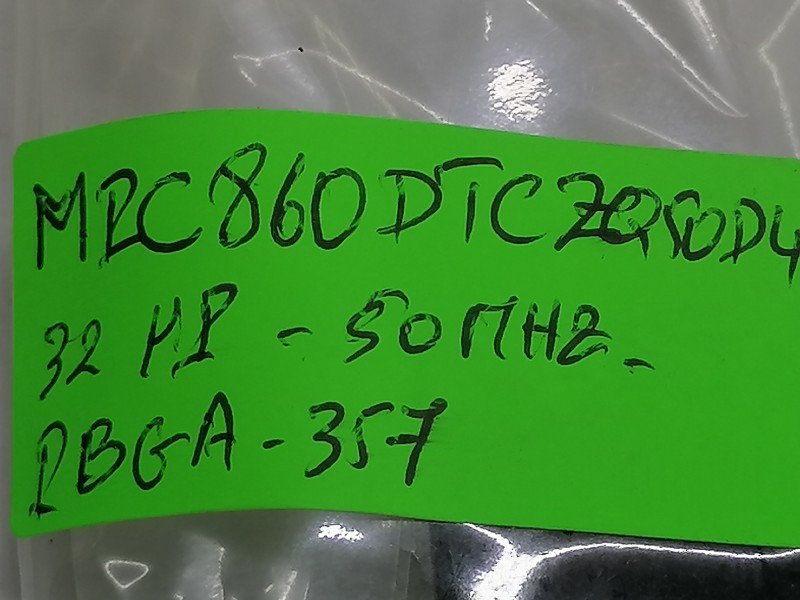 MPC860DTCZQ50D4
32 MP - 50MHZ -
PBGA - 357